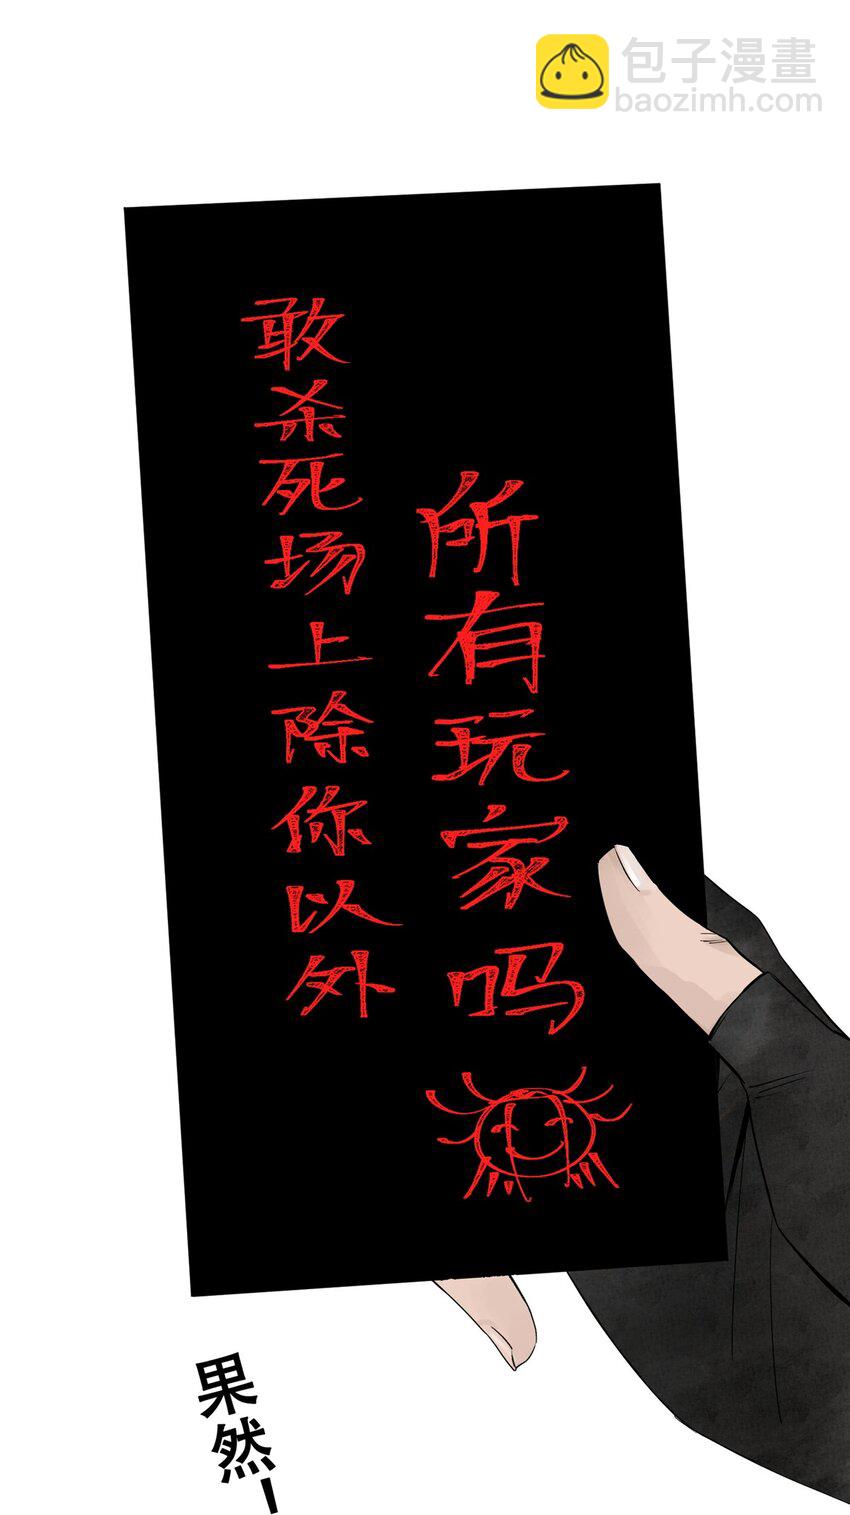 包子漫畫
baozimh.com
敢杀死场上除你以外
所有玩家吗
果然